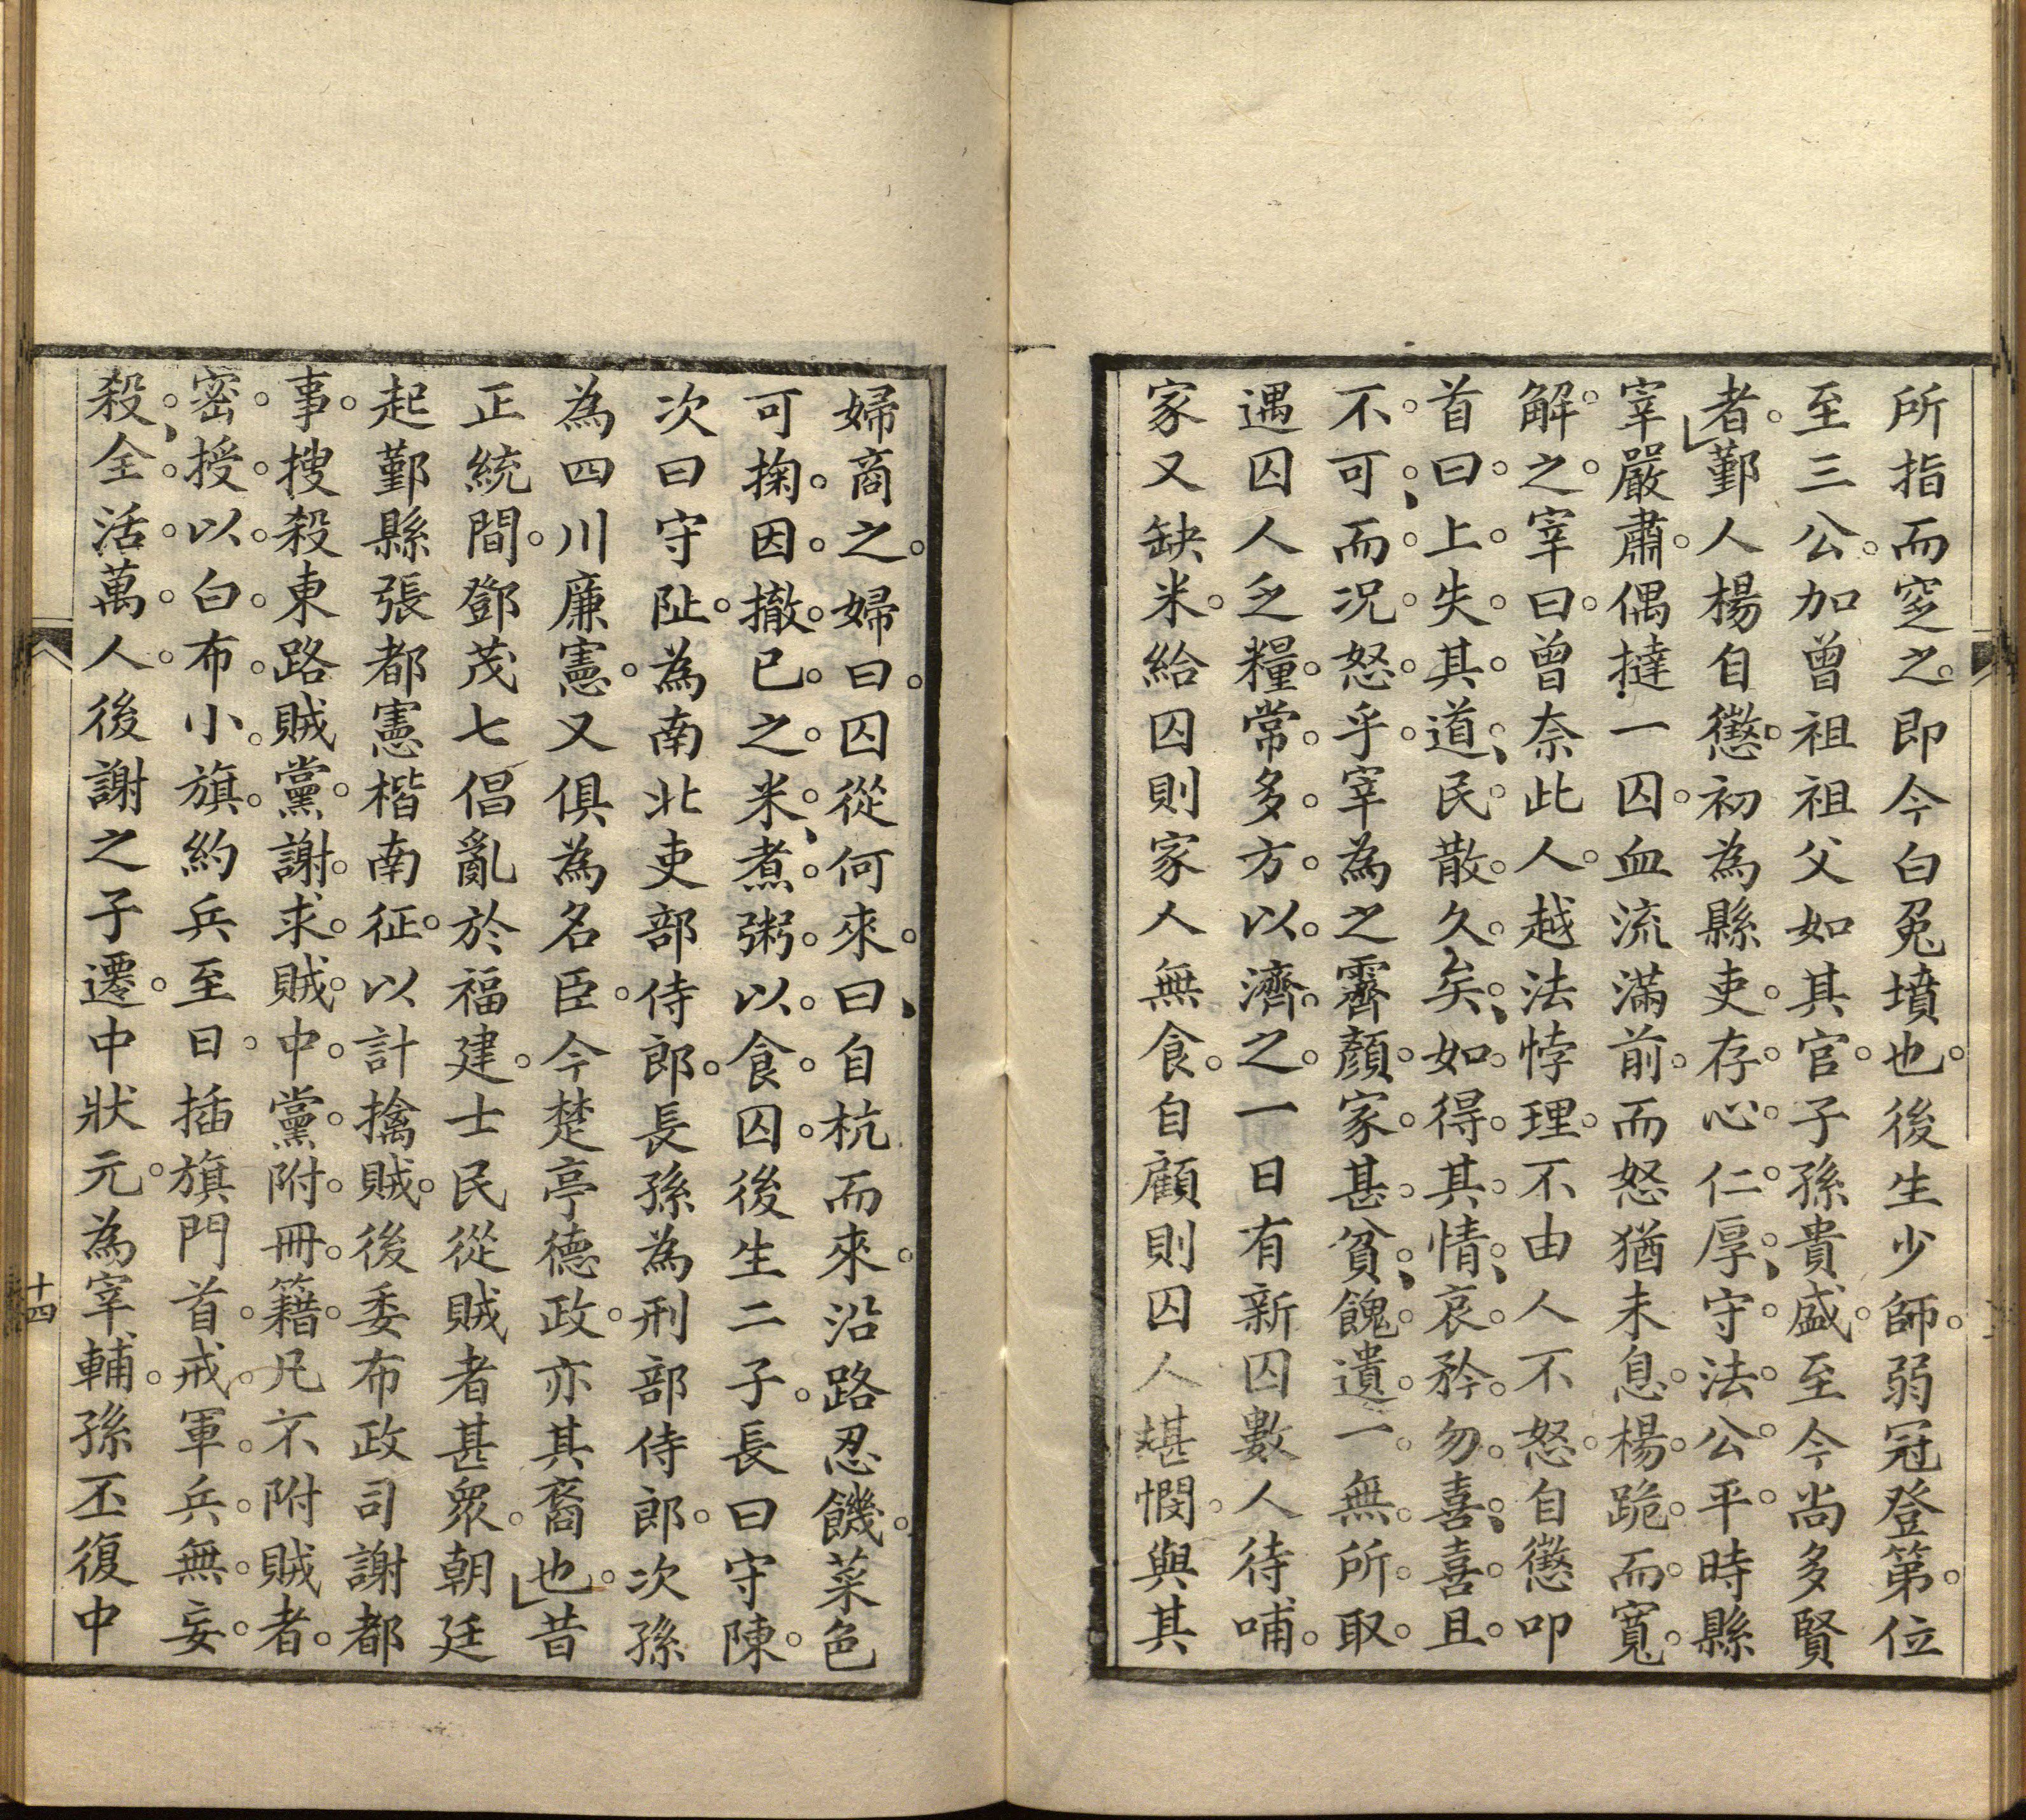 所指而窆之即今白兔墳也後生少師弱冠登第位
至三公加曾祖祖父如其官子孫貴盛至今尚多賢
者鄞人楊自懲初為縣吏存心仁厚守法公平時縣
宰嚴肅偶撻一囚血流滿前而怒猶未息楊跪而寬
解之宰曰曾奈此人越法悖理不由人不怒自懲叩
首曰上失其道民散久矣如得其情哀矜勿喜喜且
不可而况怒乎宰為之霽顏家甚貧餽遺一無所取
遇囚人乏糧常多方以濟之一日有新囚數人待哺
家又缺米給囚則家人無食自顧則囚人堪憫與其
婦商之婦曰囚從何來曰自杭而來沿路忍饑菜色
可掬因撤已之米煮粥以食囚後生二子長曰守陳
次曰守阯為南北吏部侍郎長孫為刑部侍郎次孫
為四川廉憲又俱為名臣今楚亭德政亦其裔也昔
正統間鄧茂七倡亂於福建士民從賊者甚衆朝廷
起鄞縣張都憲楷南征以計擒賊後委布政司謝都
事搜殺東路賊黨謝求賊中黨附冊籍凡不附賊者
密授以白布小旗約兵至日插旗門首戒軍兵無妄
殺全活萬人後謝之子遷中狀元為宰輔孫丕復中
十四